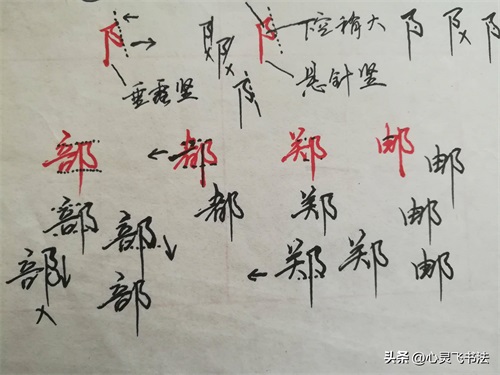 阝 阝 阝 阝 下空稍大 阝 阝 阝
垂露竖 阝 悬针竖
部 都 郑 邮 邮
部 部 都 郑 邮
部 部 郑 郑 邮
头条 @心灵飞书法